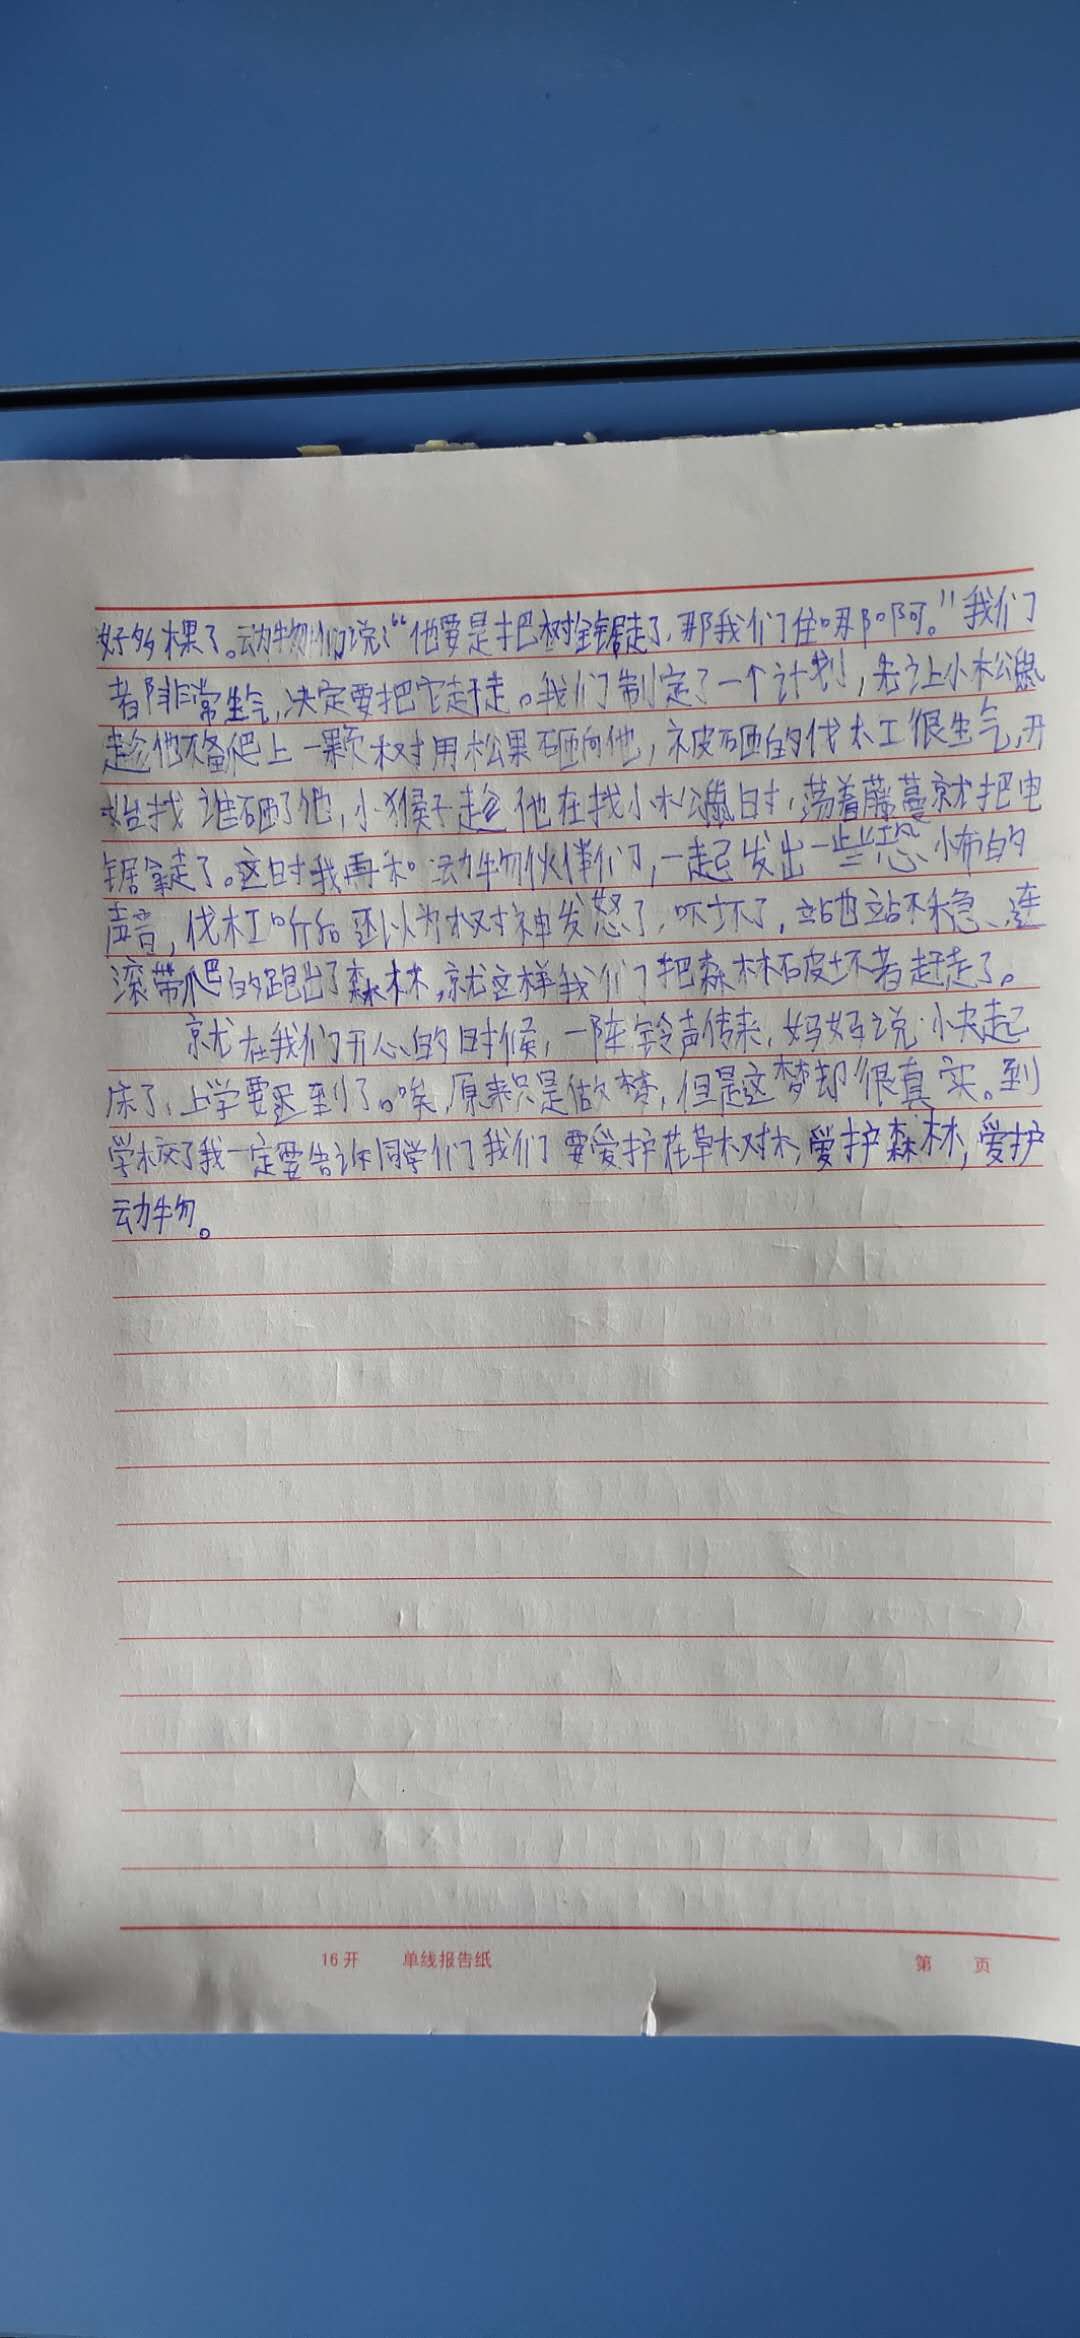 好多棵了。动物们说：“他要是把树全锯走了，那我们住哪啊。”我们
都非常生气，决定要把它赶走。我们制定了一个计划，先让小松鼠
趁他不备爬上一颗树用松果砸向他，被砸的伐木工很生气，开
始找谁砸了他，小猴子趁他在找小松鼠时，荡着藤蔓就把电
锯拿走了。这时我再和动物伙伴们，一起发出一些恐怖的
声音，伐木工听后还以为树神发怒了，吓坏了，站也站不稳、连
滚带爬的跑出了森林，就这样我们把森林破坏者赶走了。
就在我们开心的时候，一阵铃声传来，妈妈说：小夫起
床了，上学要迟到了。唉，原来只是做梦，但是这梦却很真实。到
学校了我一定要告诉同学们我们要爱护花草树木，爱护森林，爱护
动物。
16开 单线报告纸 第 页